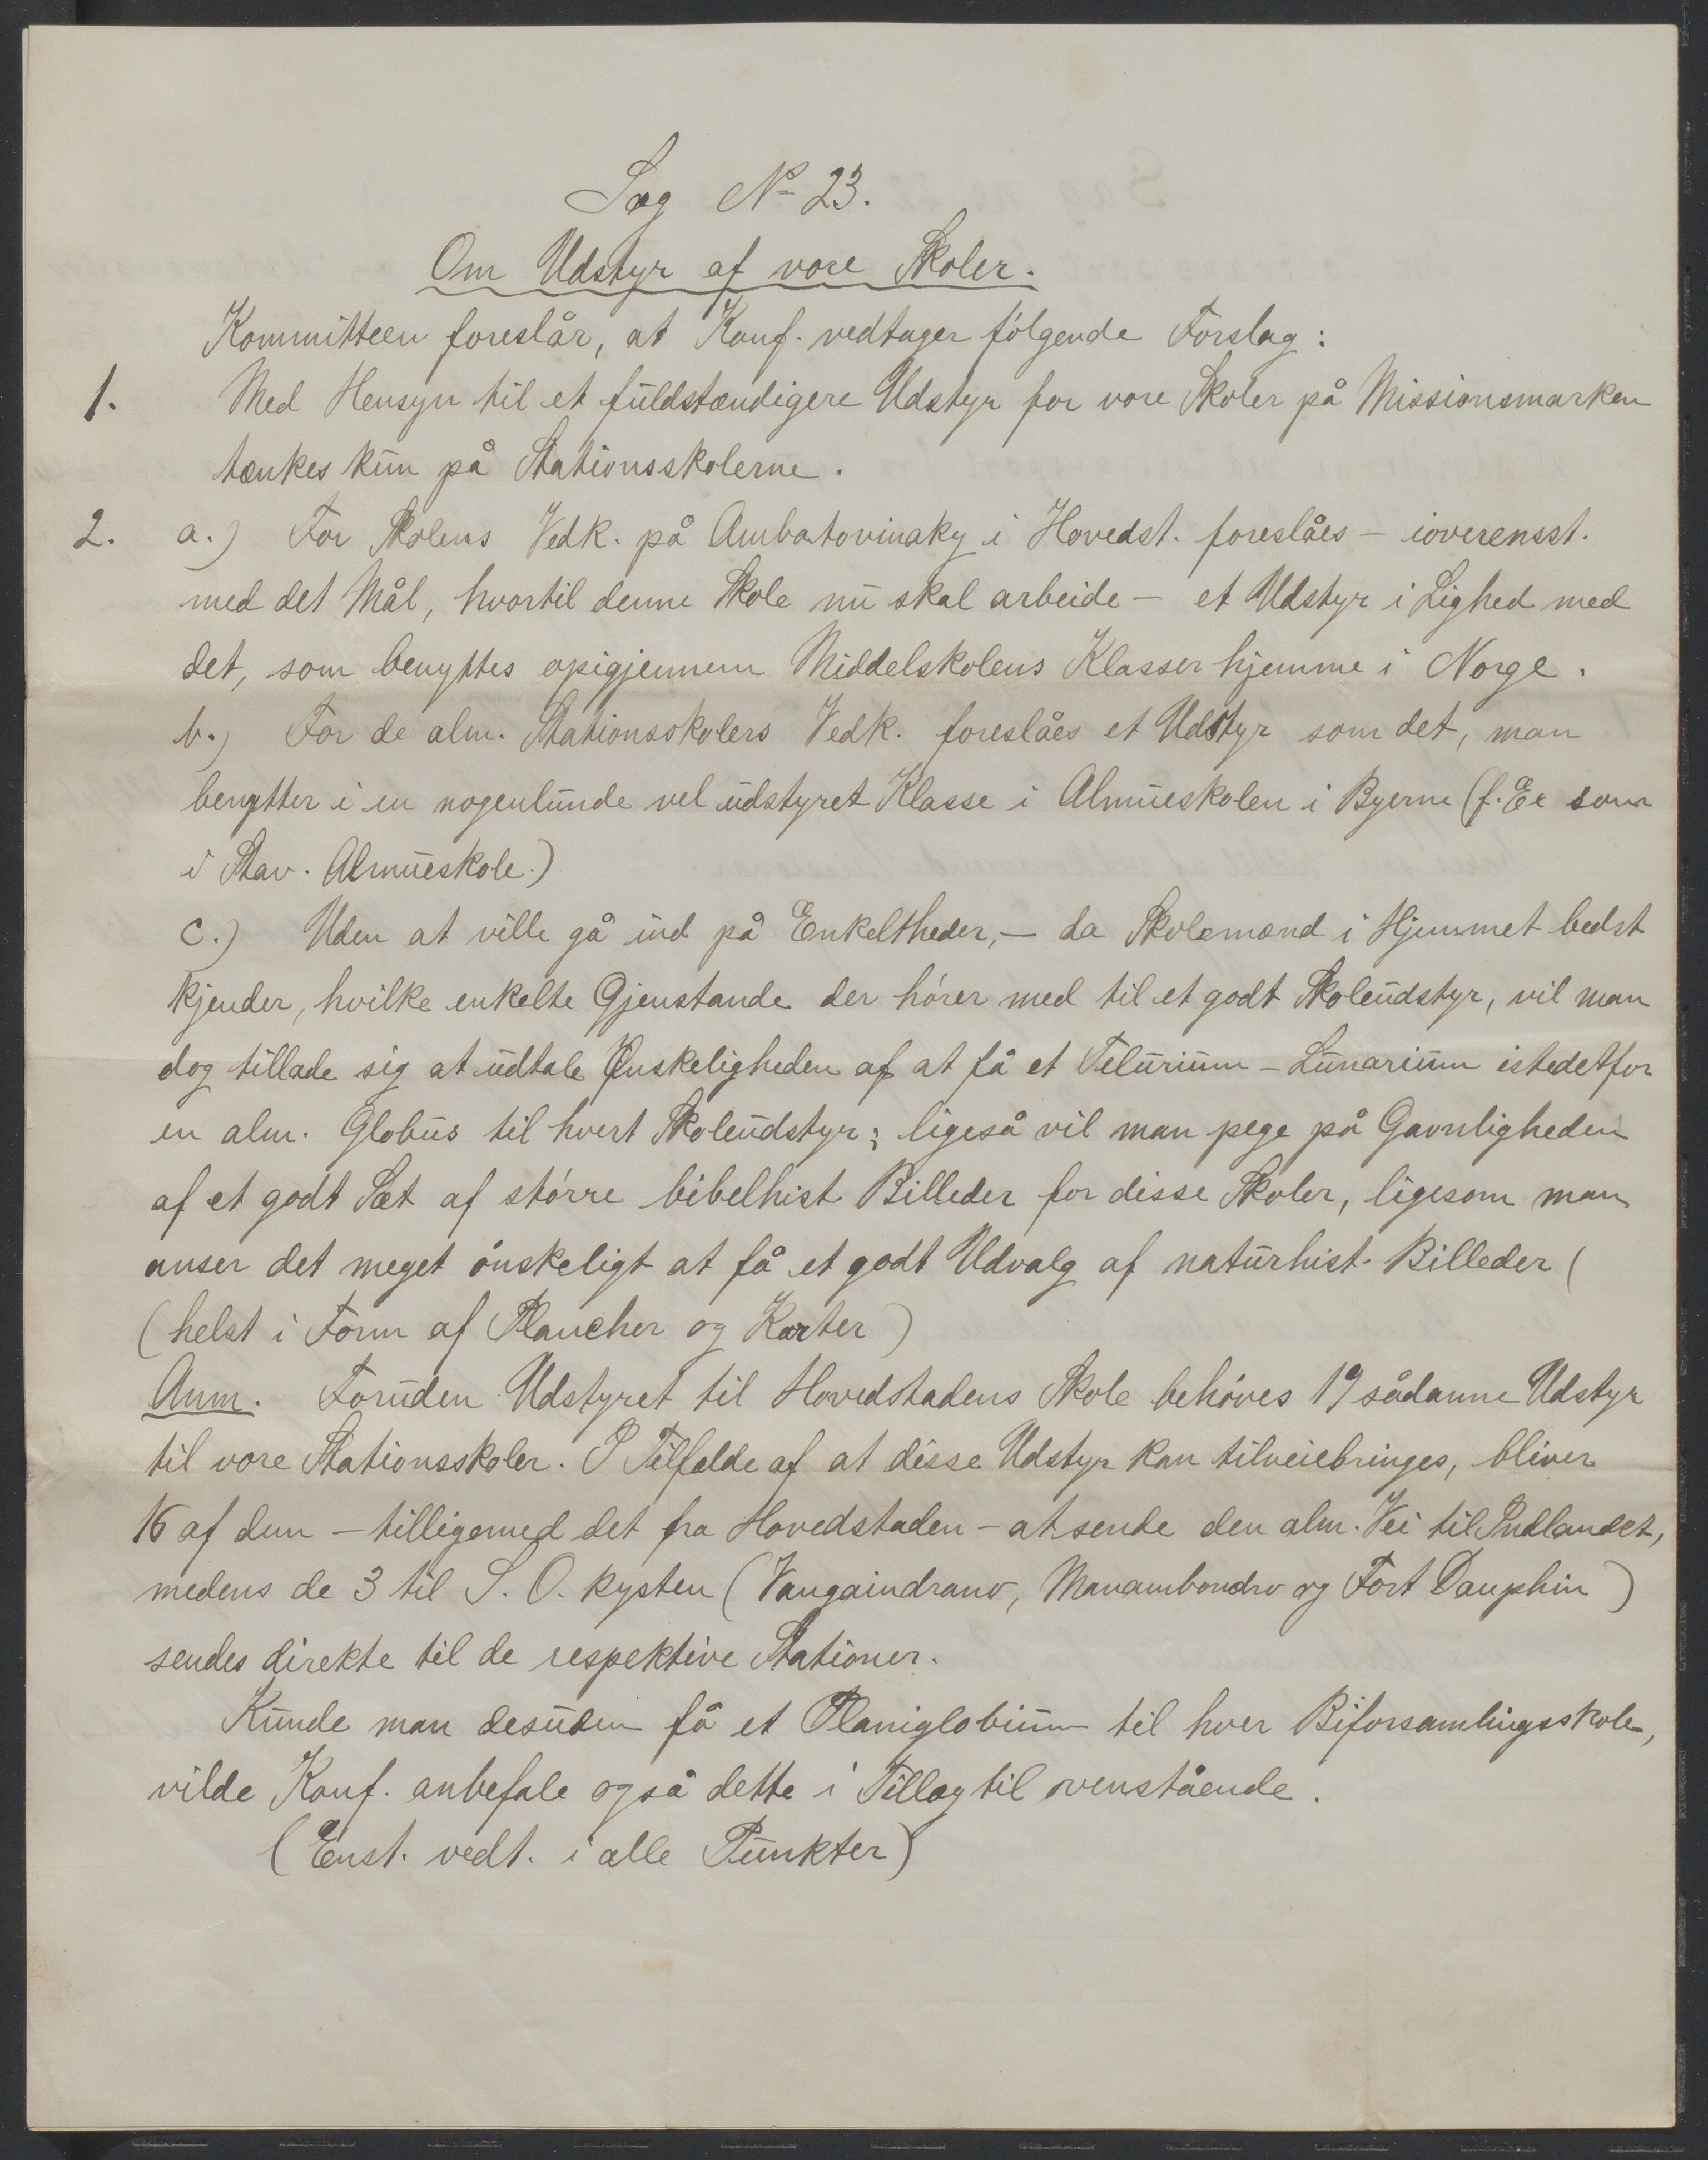 Sag No 23.
Om Udstyr af vore Skoler.
Kommitteen foreslår, at Konf. vedtager følgende Forslag:
1. Med Hensyn til et fuldstændigere Udstyr for vore Skoler på Missionsmarken
tænkes kun på Stationsskolerne.
2. a.) For Skolens Vedk. på Ambatovinaky i Hovedst. foreslåes – ioverensst.
med det Mål, hvortil denne Skole nu skal arbeide – et Udstyr i Lighed med
det, som benyttes opigjennem Middelskolens Klasser hjemme i Norge.
b.) For de alm. Stationsskolers Vedk. foreslåes et Udstyr som det, man
benytter i en nogenlunde vel udstyret Klasse i Almueskolen i Byerne (f. Ex som
i Stav. Almueskole.)
c.) Uden at ville gå ind på Enkeltheder, – da Skolemænd i Hjemmet bedst
kjender, hvilke enkelte Gjenstande der hører med til et godt Skoleudstyr, vil man
dog tillade sig at udtale Ønskeligheden af at få et Telurium – Lunarium istedetfor
en alm. Globus til hvert Skoleudstyr; ligeså vil man pege på Gavnligheden
af et godt Sæt af større bibelhist. Billeder for disse Skoler, ligesom man
anser det meget ønskeligt at få et godt Udvalg af naturhist. Billeder (
(helst i Form af Plancher og Karter)
Anm. Foruden Udstyret til Hovedstadens Skole behøves 19 sådanne Udstyr
til vore Stationsskoler. I Tilfælde af at disse Udstyr kan tilveiebringes, bliver
16 af dem – tilligemed det fra Hovedstaden – at sende den alm. Vei til Indlandet,
medens de 3 til S. O. kysten (Vangaindrano, Manambondro og Fort Dauphin)
sendes direkte til de respektive Stationer.
Kunde man desuden få et Planiglobium til hver Biforsamlingsskole,
vilde Konf. anbefale også dette i Tillæg til ovenstående.
(Enst. vedt. i alle Punkter)